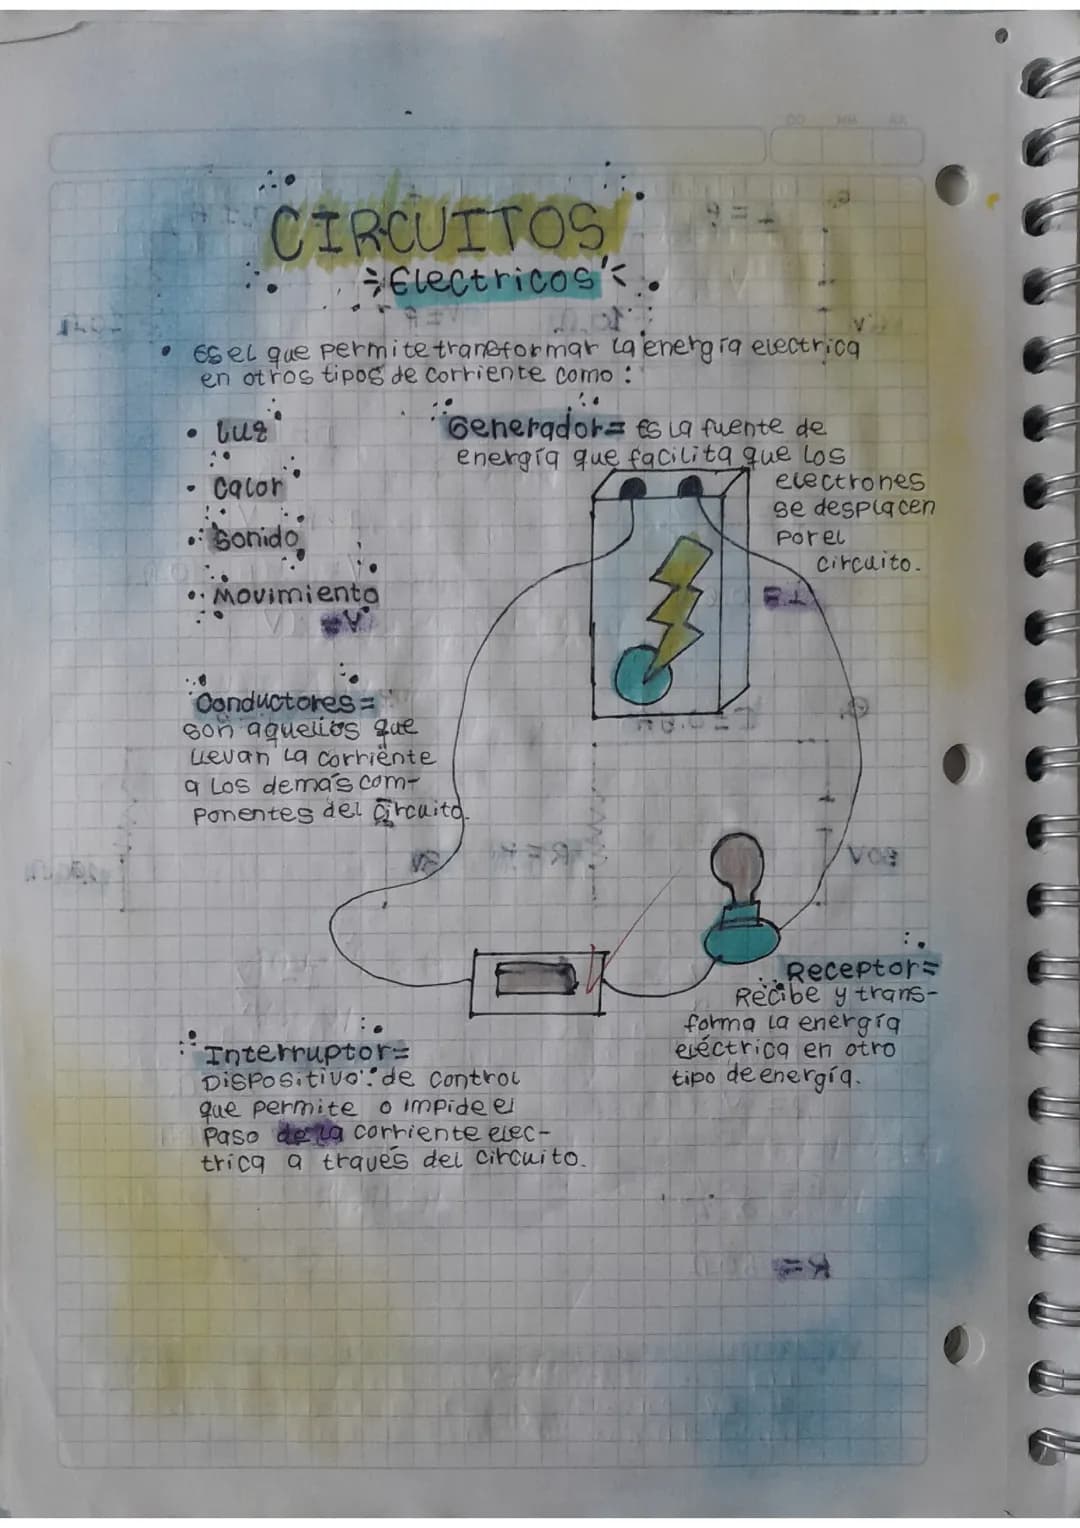 CIRCUITOS
Electricos
• Es el que permite transformar la energía electrica
en otros tipos de corriente como :
• Luz
• Calor
• Sonido
• Movimiento
Generador= Es la fuente de
energía que facilita que los
electrones
se desplacen
por el
circuito.
Conductores=
son aquellos que
llevan la corriente
a los demás com-
ponentes del circuito.
Receptor=
Recibe y trans-
forma la energía
eléctrica en otro
tipo de energía.
Interruptor=
Dispositivo de control
que permite o impide el
paso de la corriente elec-
trica a través del circuito.